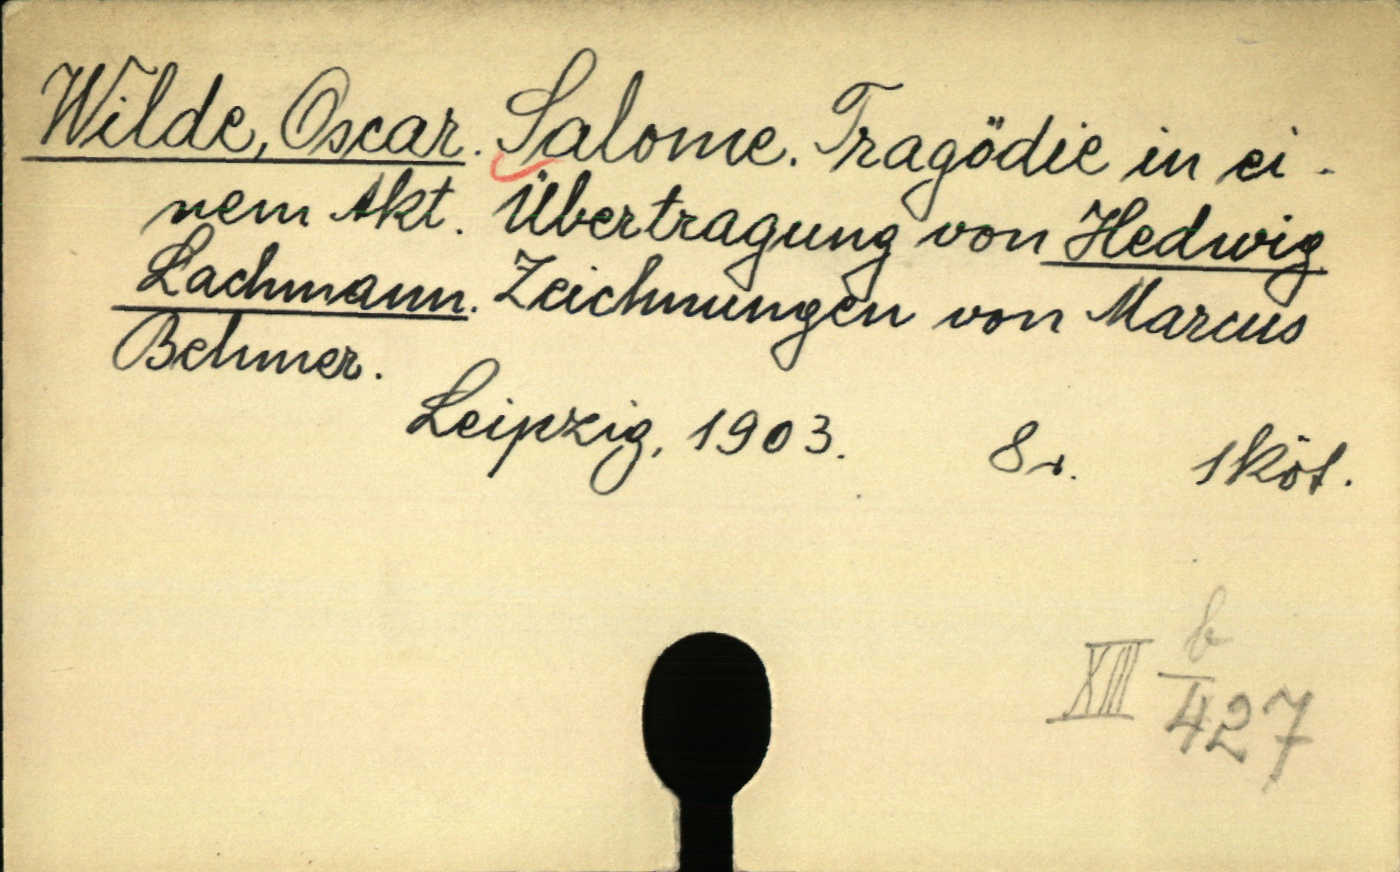 Wilde, Oscar. Salome. Tragödie in ei-
nem Akt. Übertragung von Hedwig
Lachmann. Zeichnungen von Marcus
Behmer.
Leipzig, 1903. 8r. 1 köt.
XIII b/427